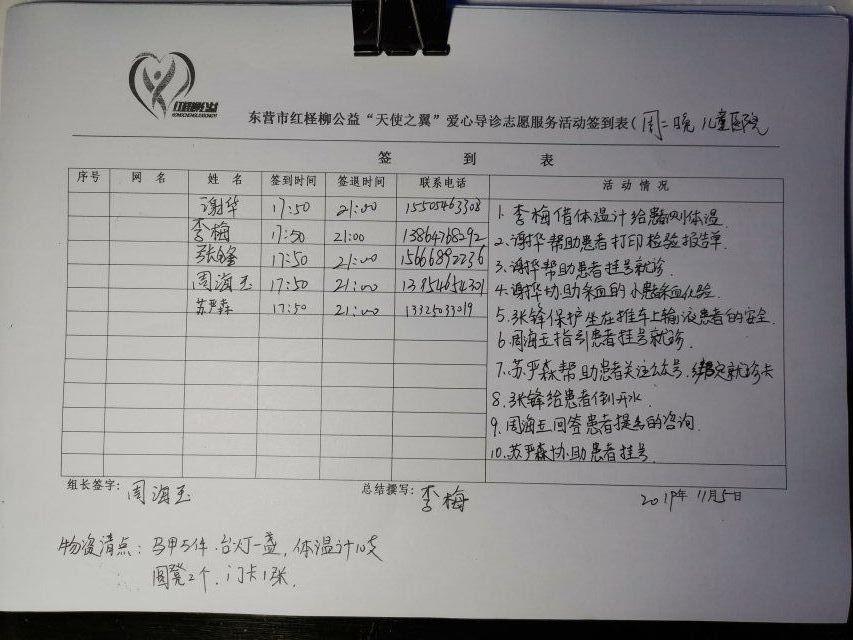 红柽柳公益
东营市红柽柳公益“天使之翼”爱心导诊志愿服务活动签到表(周二晚 儿童医院
签 到 表
序号 网名 姓名 签到时间 签退时间 联系电话 活动情况
谢华 17:50 21:00 15505463308
李梅 17:50 21:00 13864768292
张锋 17:50 21:00 15666892236
周海玉 17:50 21:00
苏严森 17:50 21:00 13325033019
1. 李梅借体温计给患者测体温
2. 谢华帮助患者打印检验报告单
3. 谢华帮助患者挂号就诊
4. 谢华协助采血的小患者采血化验
5. 张锋保护坐在推车上输液患者的安全
6. 周海玉指引患者挂号就诊
7. 苏严森帮助患者关注公众号,绑定就诊卡
8. 张锋给患者倒开水
9. 周海玉回答患者提出的咨询
10. 苏严森协助患者挂号
组长签字:周海玉 总结撰写:李梅 2019年11月5日
物资清点:马甲5件.台灯一盏,体温计10支
圆凳2个.门卡1张.